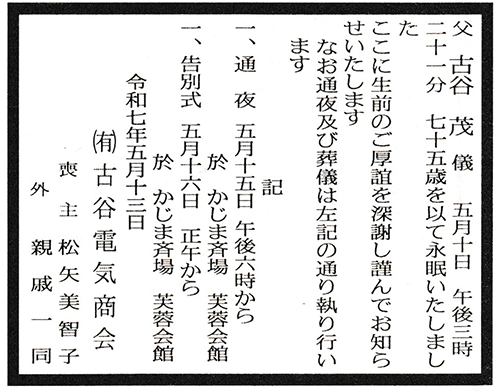 父 古谷 茂 儀 五月十日 午後三時
二十一分 七十五歳を以て永眠いたしまし
た
ここに生前のご厚誼を深謝し謹んでお知ら
せいたします
なお通夜及び葬儀は左記の通り執り行い
ます
記
一、通 夜 五月十五日 午後六時から
於 かじま斉場 芙蓉会館
一、告別式 五月十六日 正午から
於 かじま斉場 芙蓉会館
令和七年五月十三日
㈲古谷電気商会
喪主 松矢美智子
外 親戚一同